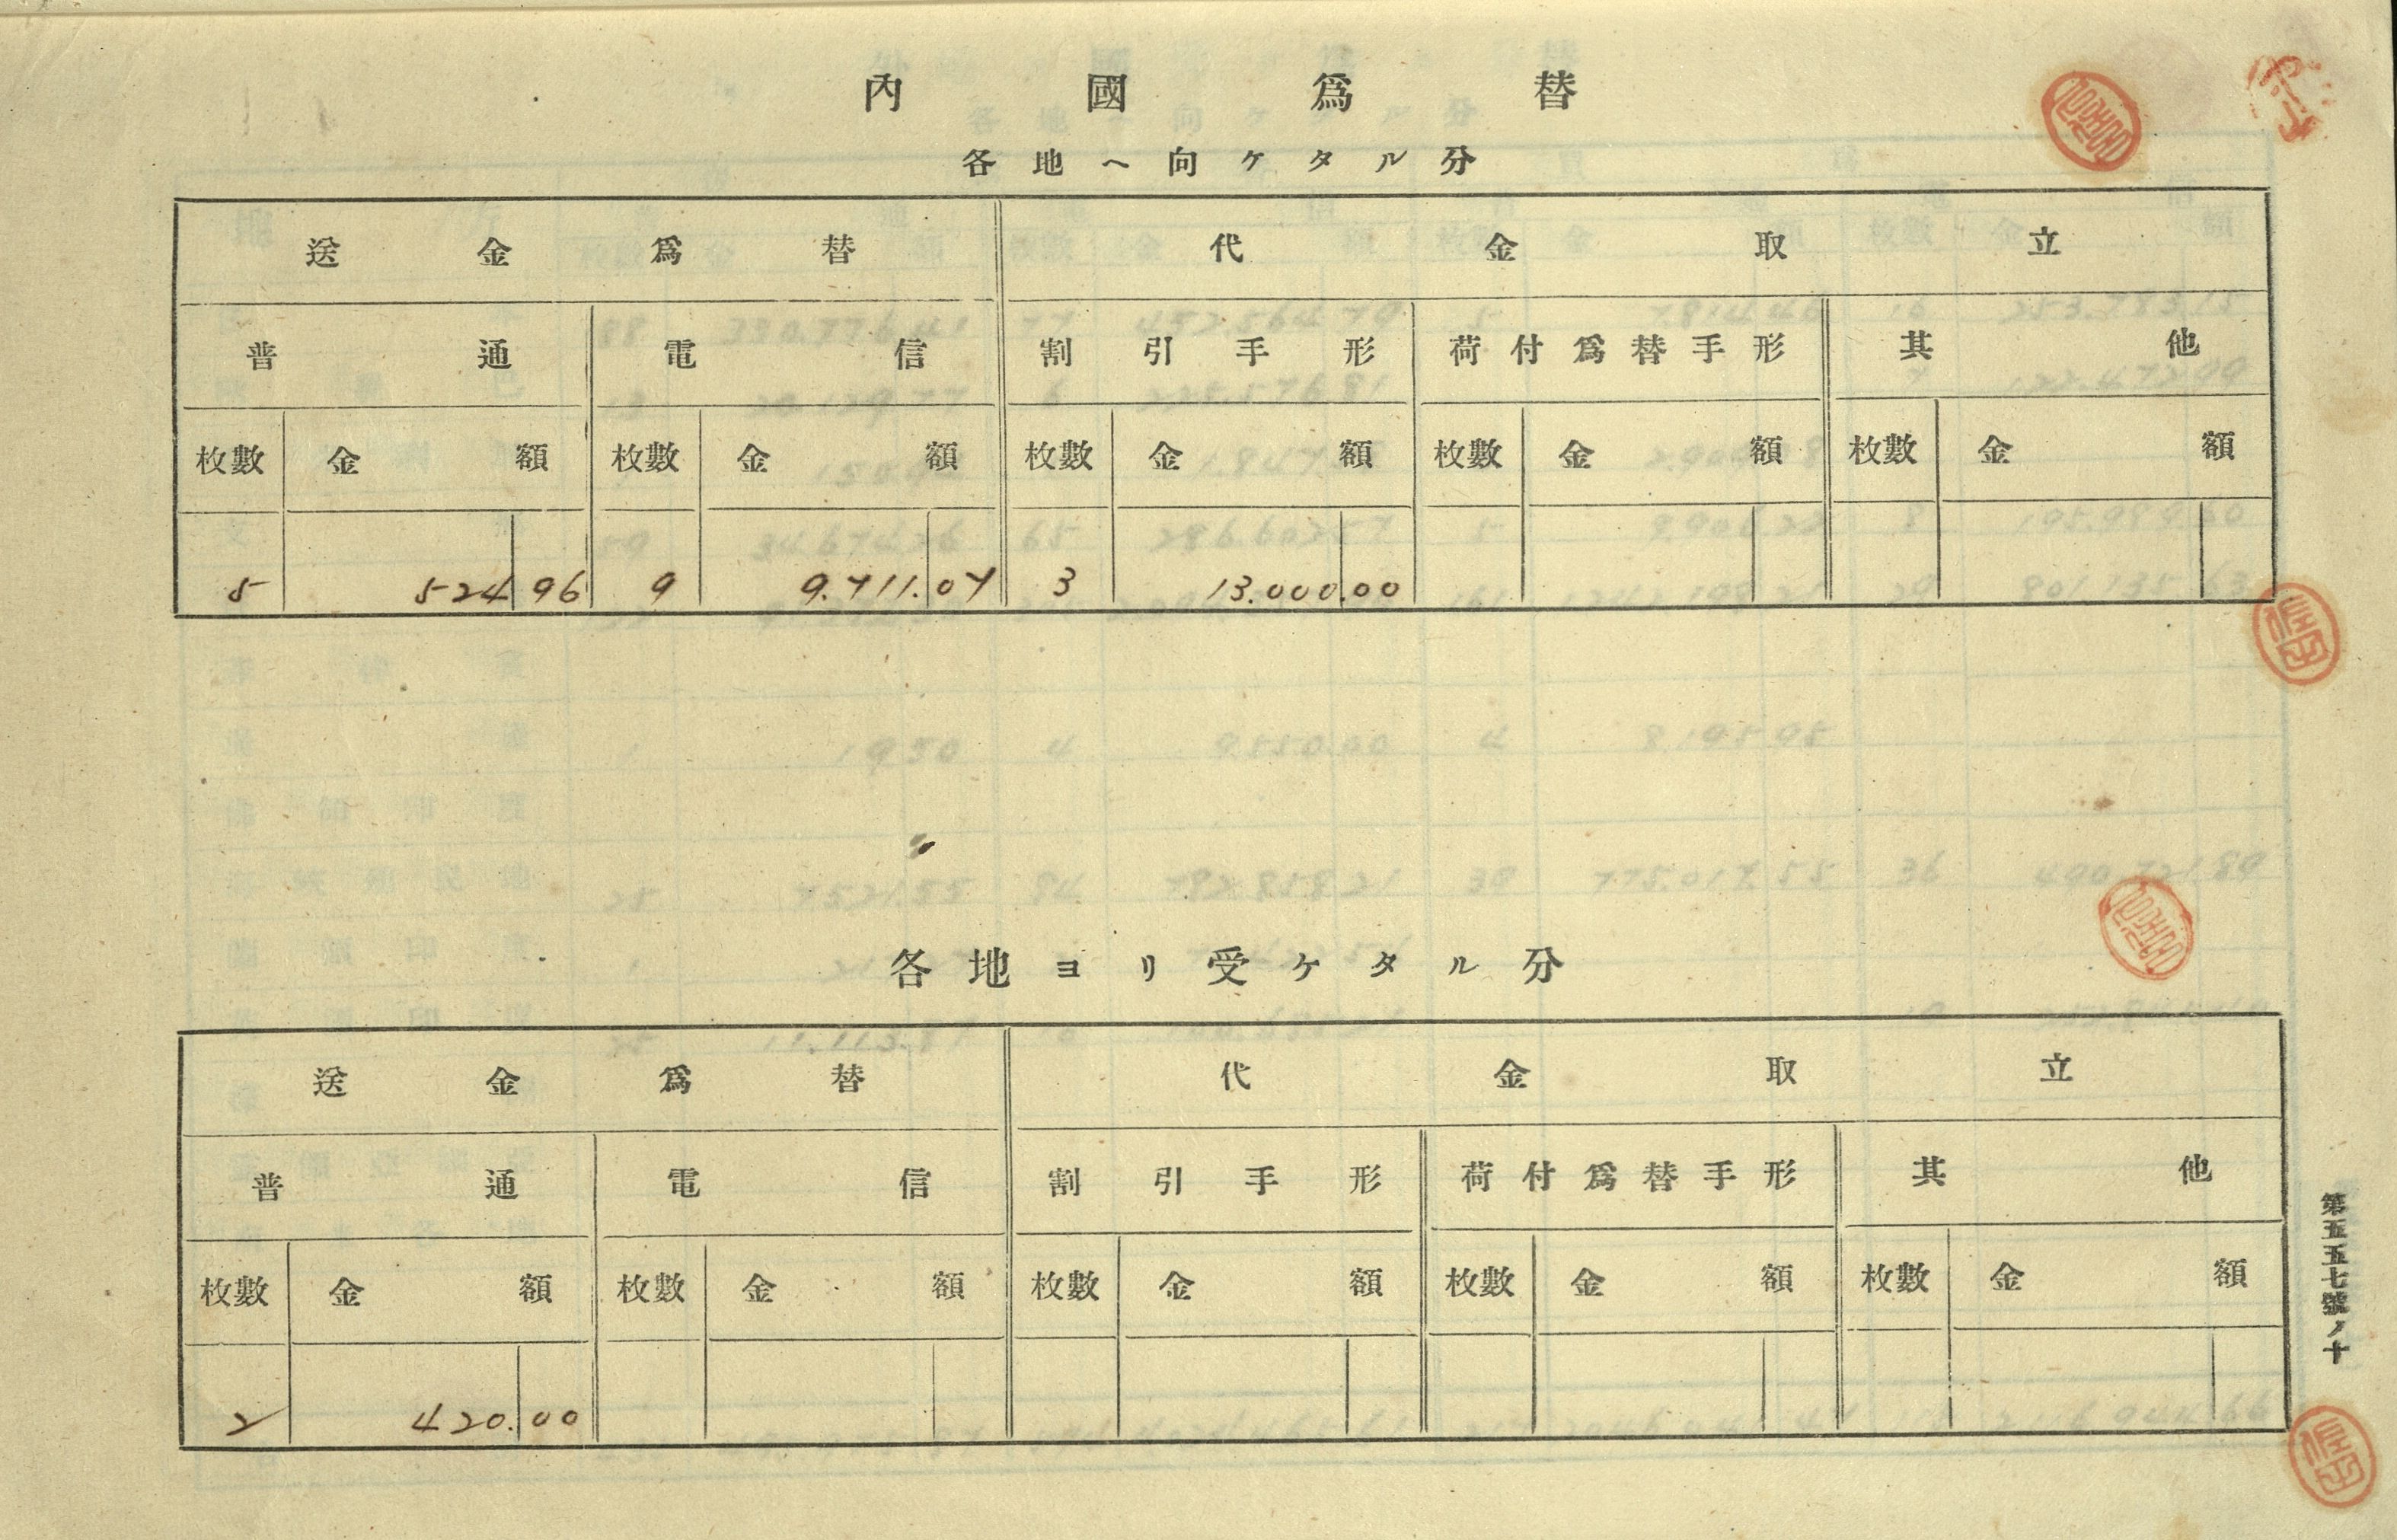 內國爲替
各地ヘ向ケタル分
送金爲替 代金取立
普通 電信 割引手形 荷付爲替手形 其他
枚數 金額 枚數 金額 枚數 金額 枚數 金額 枚數 金額
5 524 96 9 9.711.07 3 13.000.00
各地ヨリ受ケタル分
送金爲替 代金取立
普通 電信 割引手形 荷付爲替手形 其他
枚數 金額 枚數 金額 枚數 金額 枚數 金額 枚數 金額
2 420.00
第五五七號ノ十